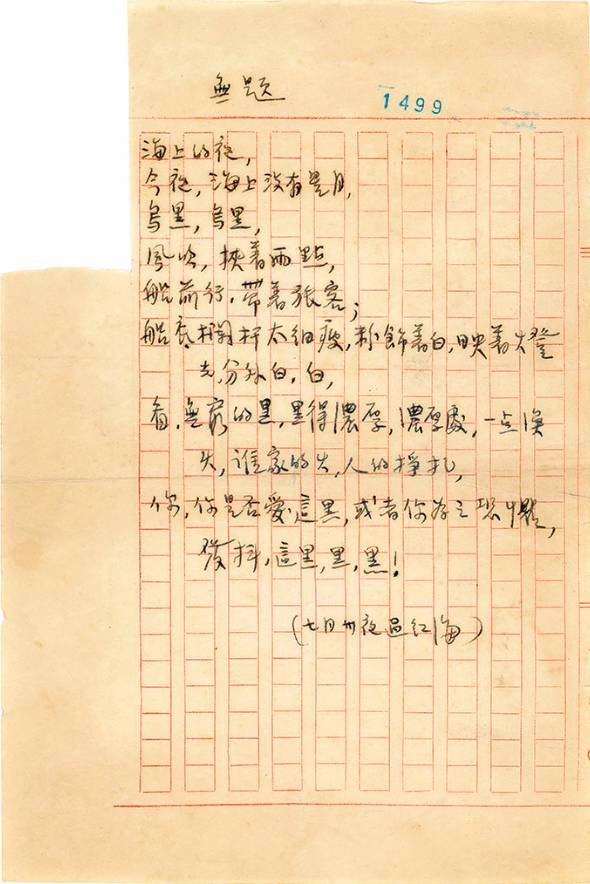 無題
1499
海上的夜,
今夜,海上沒有星月,
烏黑,烏黑,
風吹,挾着雨點,
船前行,帶着旅客;
船 欄杆太細瘦,粉飾着白,映着燈
光,分外白,白,
看,無窮的黑,黑得濃厚,濃厚處,一点漁
火,誰家的火,人的掙扎,
你,你是否愛這黑,或者你 之恐懼,
發抖,這黑,黑,黑!
(七月卅夜過紅海)